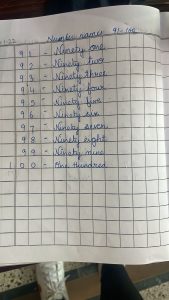 1-22 Number names 91-100
91 - Ninety one
92 - Ninety two
93 - Ninety three
94 - Ninety four
95 - Ninety five
96 - Ninety six
97 - Ninety seven
98 - Ninety eight
99 - Ninety nine
100 - One Hundred